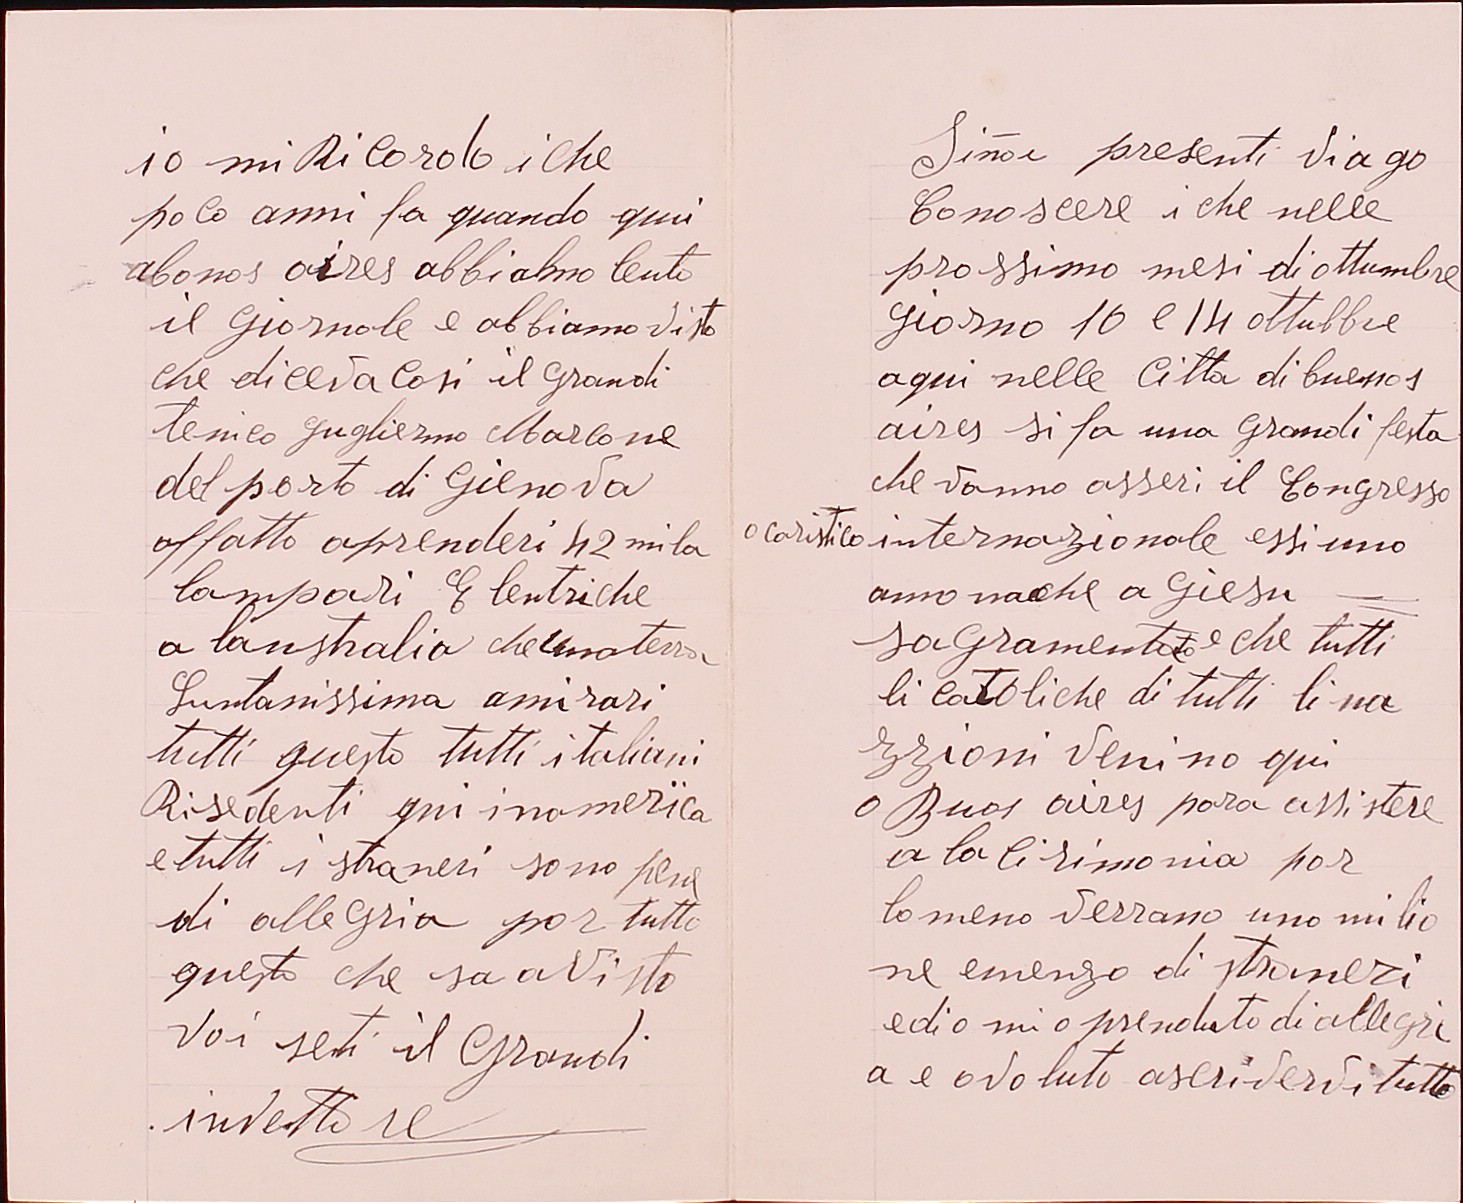 io mi Ricordo i che
poco anni fa quando qui
abonos aires abbiamo lento
il giornale e abbiamo visto
che diceva Cosi il grandi
tenico gugliermo Marcone
del porto di gienova
affatto aprenderi 42 mila
lampari Elentriche
a laustralia che una terra
Luntanissima amirari
tutti questo tutti italiani
Risedenti qui inamerica
e tutti i straneri sono pene
di allegria por tutto
questo che sa a visto
voi seti il Grandi
inventtore
Siñor presenti vi a go
Conoscere i che nelle
prossimo mesi di ottumbre
giorno 10 e 14 ottubbre
aqui nelle Citta di buenos
aires si fa una grandi festa
che vanno asseri il Congresso
ocaristico internazionale essi uno
anno nache a giesu
sagramentato e che tutti
li catoliche di tutti li na
zzioni venino qui
a Buos aires para assistere
a la Cirimonia por
lo meno verrano uno milio
ne emenzo di straneri
ed io mi o prenduto di allegri
a e o voluto ascrivervi tutto